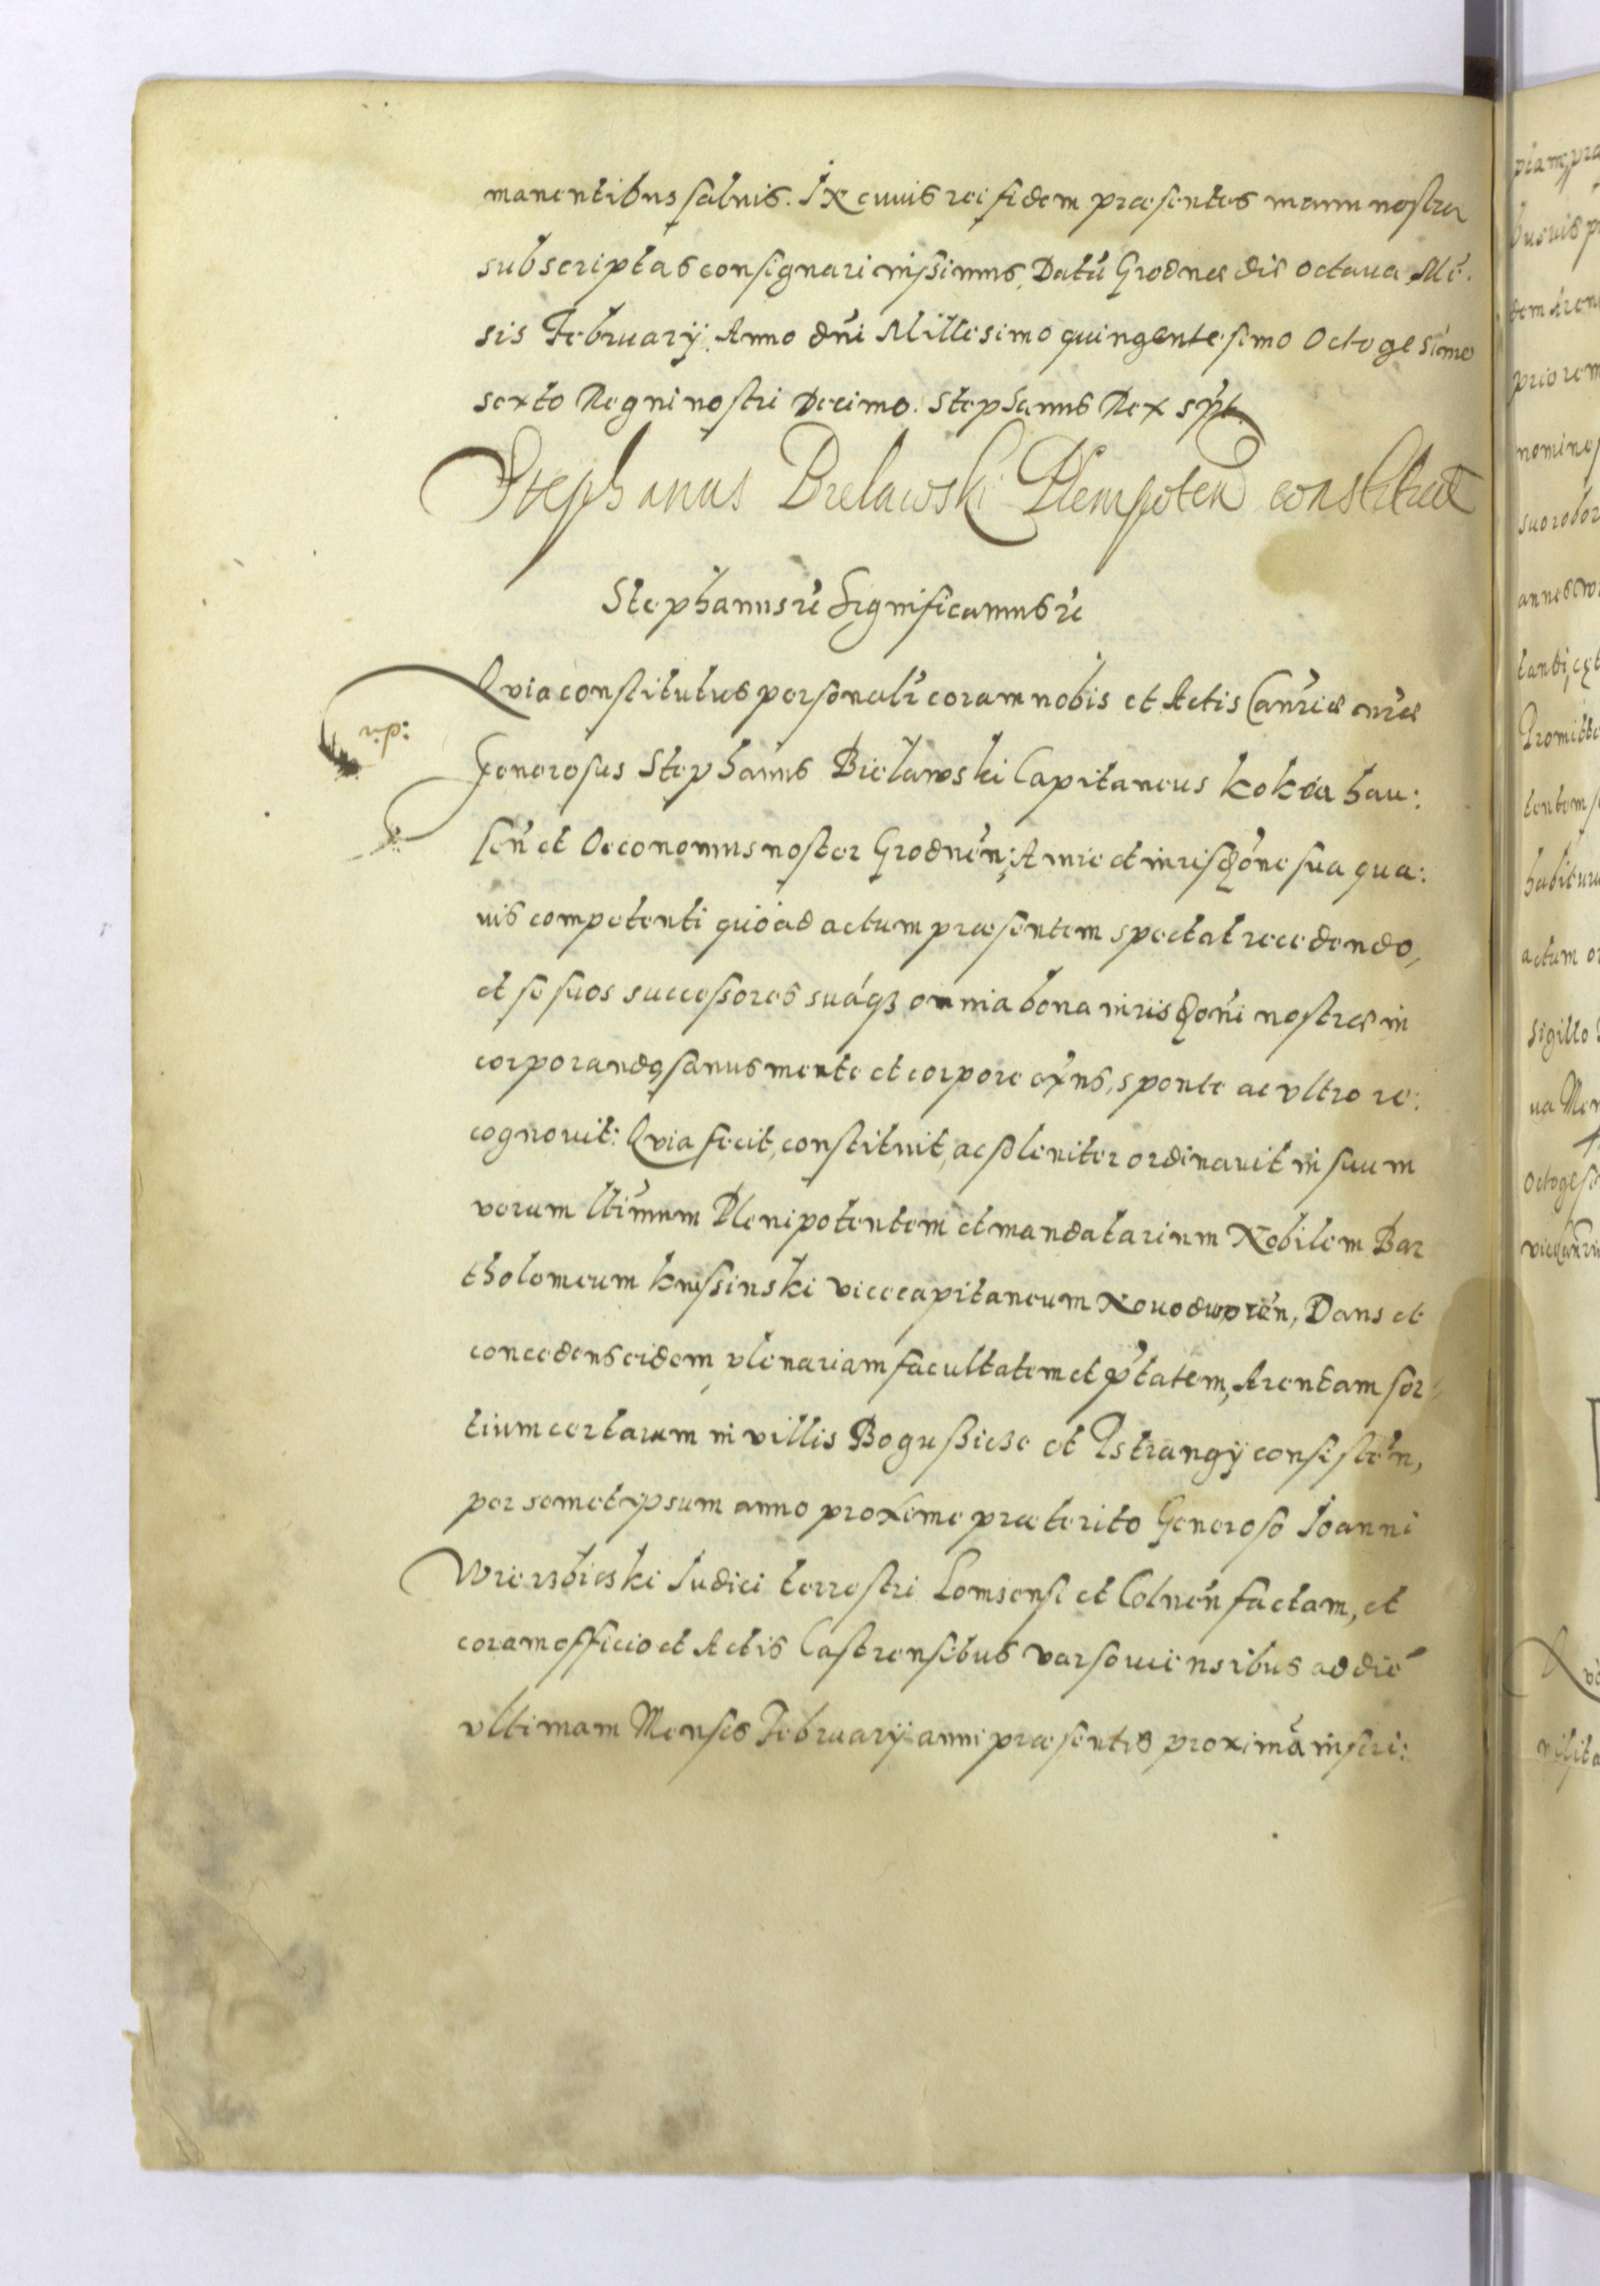 manentibus saluis. In cuius rei fidem præsentes manu nostra
subscriptas consignari iussimus, Datũ Grodnæ die octaua Mẽ:
sis February Anno dñi Millesimo quingentesimo Octogesimo
sexto Regni nostri Decimo. Stephanus Rex sp̃t.
Stephanus Bielawski Plenipoten constituit
Stephanus rc̃ Significamus rc̃
Quia constitutus personalr̃ coram nobis et Actis Canr̃iæ nr̃æ
:dir
Generosus Stephanus Bielawski Capitaneus kokenhau:
sen̄ et Oeconomus noster Grodnen̄, A iure et iurisdc̃one sua qua:
uis competenti quoad actum præsentem spectat recedendo,
et se suos successores suáqꝫ omnia bona iurisdc̃oni nostræ in
corporando, sanus mente et corpore exñs, sponte ac vltro re:
cognouit: Quia fecit, constituit, ac soleniter ordinauit in suum
verum ltĩmum Plenipotentem et mandatarium Nobilem Bar
tholomeum knissinski vicecapitaneum Nouodworen̄, Dans et
concedens eidem plenariam facultatem et p̃tatem, Arentam sor
tium certarum in villis Bogussicze et Pstrangy consisten̄,
per semetipsum anno proxime præterito Generoso Joanni
Wierzbieski Judici terrestri Lomsensi et Colnen̄ factam, et
coram officio et Actis Castrensibus varsouiensibus ad diẽ
vltimam Mensis February anni præsentis proximã inscri: